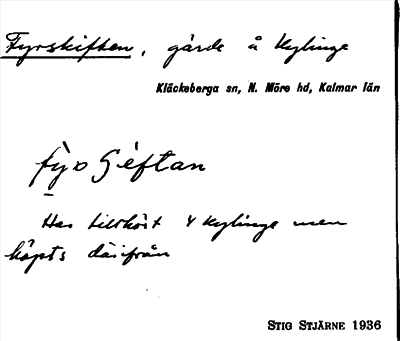 Fyrskiften, gärde å Kylinge
Kläckeberga sn, N. Möre hd, Kalmar län
Har tillhört V Kylinge men
köpts därifrån
STIG STJÄRNE 1936